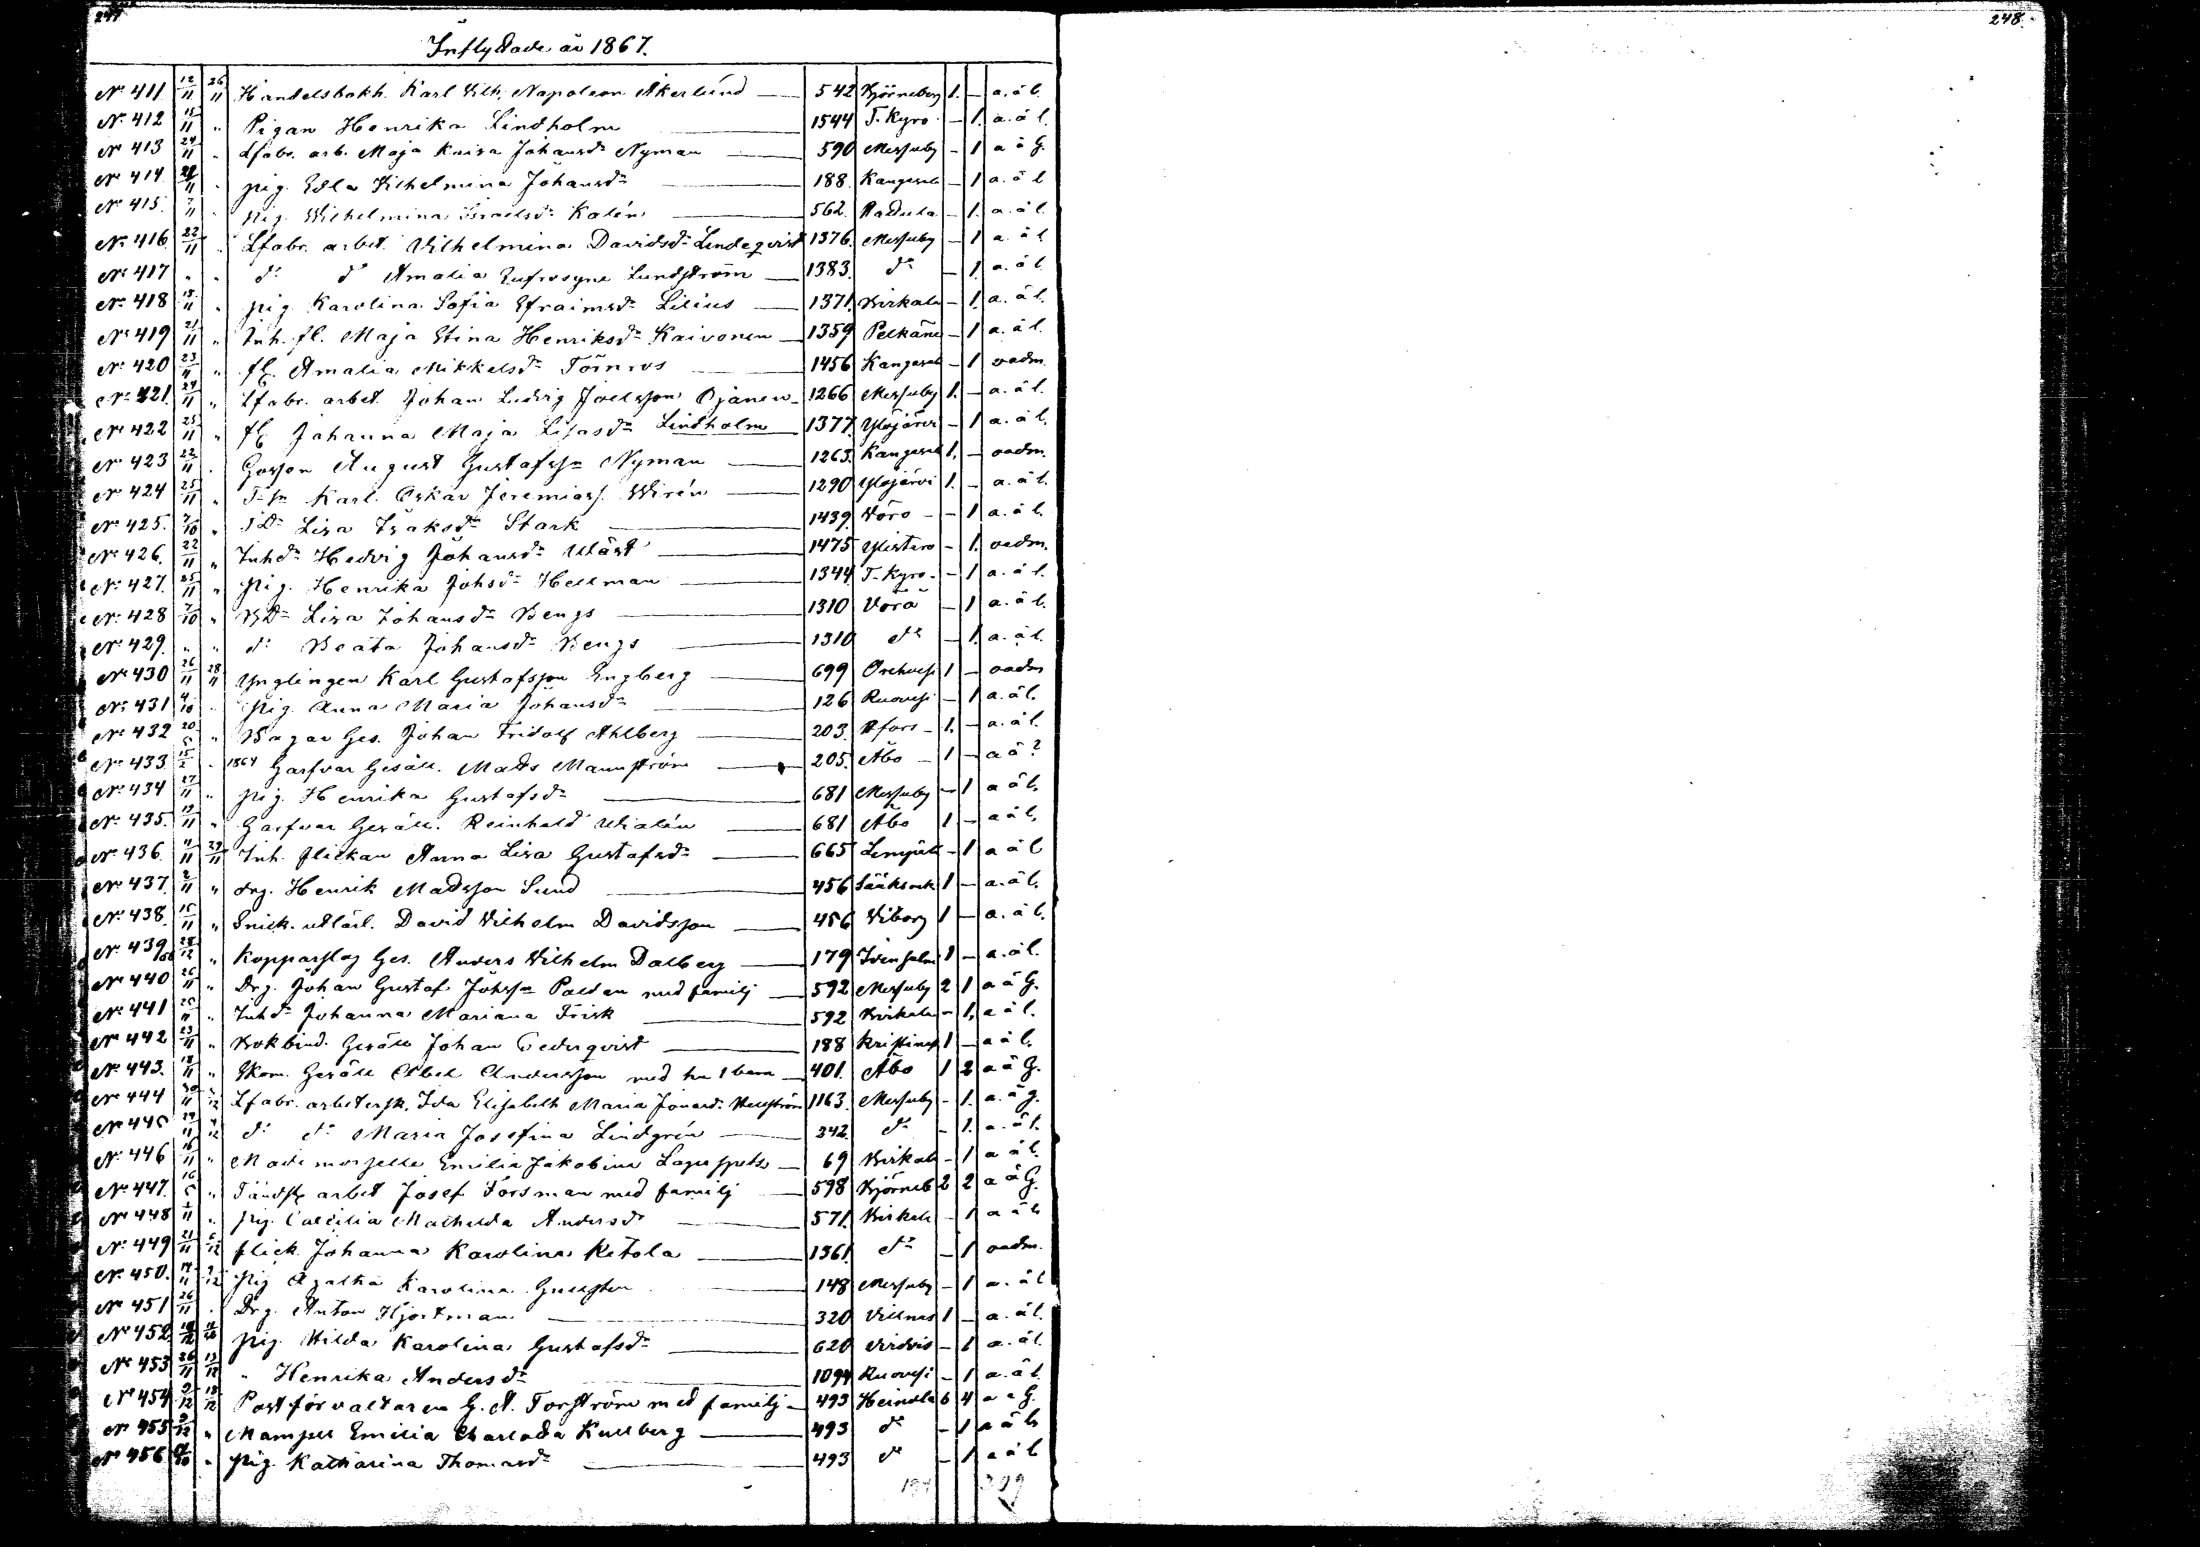 247
248.
Inflyttade år 1867.
No 411. 12/11 26/11 Handelsbokh. Karl Vilh. Napoleon Åkerlund — 542 Björneborg 1. — a. ä l.
No 412 15/11 " Pigan Henrika Lindholm — 1544 T. Kyro — 1. a. ä l.
No 413 24/11 " Lfabr. arb. Maja Kaisa Johansdr Nyman — 590 Messuby — 1 a ä G.
No 414 /11 " pig. Edla Vilhelmina Johansdr — 188. Kangasala — 1 a. ä l
No 415. 7/11 " pig. Wilhelmina Israelsdr Kalén — 562. — 1. a. ä l.
No 416 22/11 " Lfabr. arbet. Vilhelmina Davidsdr Lindeqvist 1376. Messuby — 1 a. ä l
No 417 " " do do Amalia Eufrosyne Lundström — 1383. do — 1. a. ä l.
No 418 18/11 " pig. Karolina Sofia Efraimsdr Lilius — 1371. Birkala — 1. a. ä l.
No 419 21/11 " Inh. fl. Maja Stina Henriksdr Kaivonen — 1359 Pelkäne — 1 a. ä l.
No 420 23/11 " fl. Amalia Mikkelsdr Törnros — 1456 Kangasal — 1 oadm.
No 421. 24/11 " Lfabr. arbet. Johan Ludvig Joelsson Ojanen — 1266 Messuby 1. — a. ä l.
No 422 25/11 " fl. Johanna Maja Lisasdr Lindholm — 1377. Ylöjärvi — 1 a. ä l.
No 423 22/11 " Gosson August Gustafsson Nyman — 1263. Kangasal 1. — oadm.
No 424 25/11 " T. sn Karl Oskar Jeremiass. Wirén — 1290 Ylöjärvi 1. — a. ä l.
No 425. 7/10 " TDr Lisa Isaksdr Stark — 1439. Vörå — 1 a. ä l.
No 426. 22/11 " Inhdr Hedvig Johansdr Wäst — 1475 Ylistaro — 1. oadm.
No 427. 25/11 " pig. Henrika Johsdr Hellman — 1344 T. Kyro — 1 a. ä l.
No 428 7/10 " BDr Lisa Johansdr Bengs — 1310 Vörå — 1 a. ä l.
No 429. " " do Beata Johansdr Bengs — 1310 do — 1. a. ä l.
No 430 26/11 28/11 Ynglingen Karl Gustafsson Engberg — 699 Orehvesi 1 — oadm
No 431 4/10 " pig. Anna Maria Johansdr — 126 Ruovesi — 1 a. ä l.
No 432 20/5 " Bagar Ges. Johan Fridolf Ahlberg — 203. Hfors — 1. — a. ä l.
No 433. 15/2 " 1864 Garfvar Gesäll. Mats Mannström — 205. Åbo — 1 — a ä ?
No 434 27/11 " pig. Henrika Gustafsdr — 681 Messuby — 1 a ä l.
No 435. 19/11 " Garfvar Gesäll. Reinhold Wialén — 681 Åbo 1 — a ä l.
No 436. 4/11 29/11 Inh. flickan Anna Lisa Gustafsdr — 665 Lempäl — 1 a ä l
No 437. 2/11 " drg. Henrik Madsson Sund — 456 Sääksmk 1 — a. ä l.
No 438. 15/11 " Snick. utlärl. David Vilhelm Davidsson — 456 Viborg 1 — a. ä l.
No 439/66 28/12 " Kopparslag Ges. Anders Vilhelm Dalberg — 179 Idensalmi 1 — a. ä l.
No 440 26/11 " Drg. Johan Gustaf Johsson Paldan med familj — 592 Messuby 2 1 a ä G.
No 441 20/11 " Inhdr Johanna Mariana Frisk — 592 Birkala — 1. a ä l.
No 442 23/11 " Bokbind. Gesäll Johan Cederqvist — 188 Kristines 1 — a ä l.
No 443. 18/11 " Gesäll Abel Andersson med hu 1 barn — 401. Åbo 1 2 a ä G.
No 444 30/11 /12 Lfabr. arbetersk. Ida Elisabeth Maria Jonasdr — 1163. Messuby — 1. a. ä g.
No 445 29/11 4/12 do do Maria Josefina Lindgrén — 342. do — 1. a. ä l.
No 446 16/11 " Mademoiselle Emilia Jakobina Lagerspets — 69 Birkala — 1 a ä l.
No 447. 16/5 " Tändst. arbet Josef Forsman med familj — 598 Björneb 2 2 a ä G.
No 448 /11 " pig. Caecilia Mathilda Andersdr — 571. Birkala — 1 a ä l.
No 449 21/11 6/12 flick. Johanna Karolina Ketola — 1361. do — 1 oadm.
No 450. 14/11 9/12 pig Agatha Karolina Gullsten — 148 Messuby — 1 a. ä l
No 451 26/11 " Drg. Anton Hjortman — 320 Villnäs 1 — a. ä l.
No 452. pig. Hilda Karolina Gustafsdr — 620 Virdois — 1 a. ä l.
No 453 26/11 13/12 " Henrika Andersdr — 1094 Ruovesi — 1 a. ä l.
No 454 9/12 18/12 Postförvaltaren G. A. Torström med familj — 493 Heinola 6 4 a ä G.
No 455 9/12 " Mamsell Emilia Charlotta Kullberg — 493 do — 1 a ä l.
No 456 /10 " pig. Katharina Thomasdr — 493 do — 1 a ä l